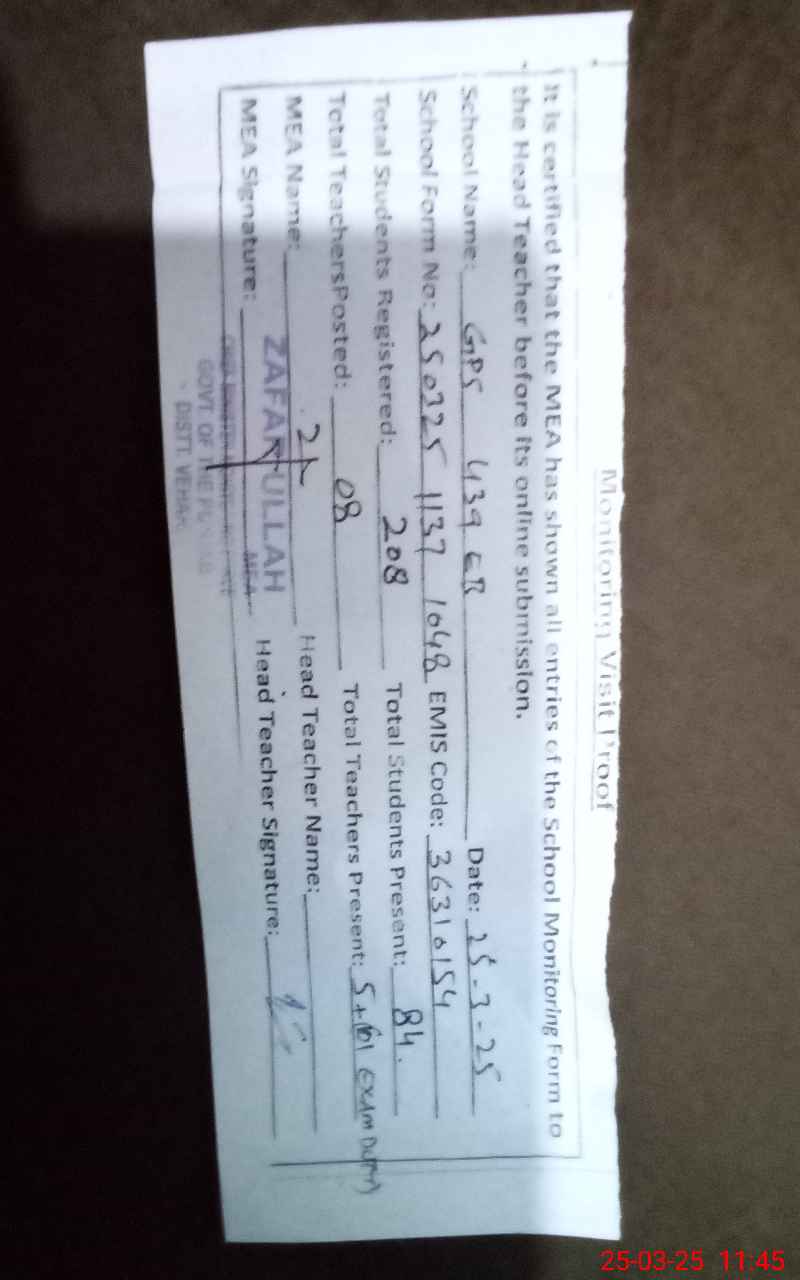 Monitoring Visit Proof
It is certified that the MEA has shown all entries of the School Monitoring Form to
the Head Teacher before its online submission.
School Name: GPS 439 EB Date: 25-3-25
School Form No: 250325 1137 1048 EMIS Code: 36310154
Total Students Registered: 208 Total Students Present: 84.
Total Teachers Posted: 08 Total Teachers Present: 5+ EXAM DUTY)
MEA Name: ZAFAR ULLAH Head Teacher Name:
MEA Signature: MEA Head Teacher Signature:
GOVT. OF THE PUNJAB
DISTT. VEHARI
25-03-25 11:45